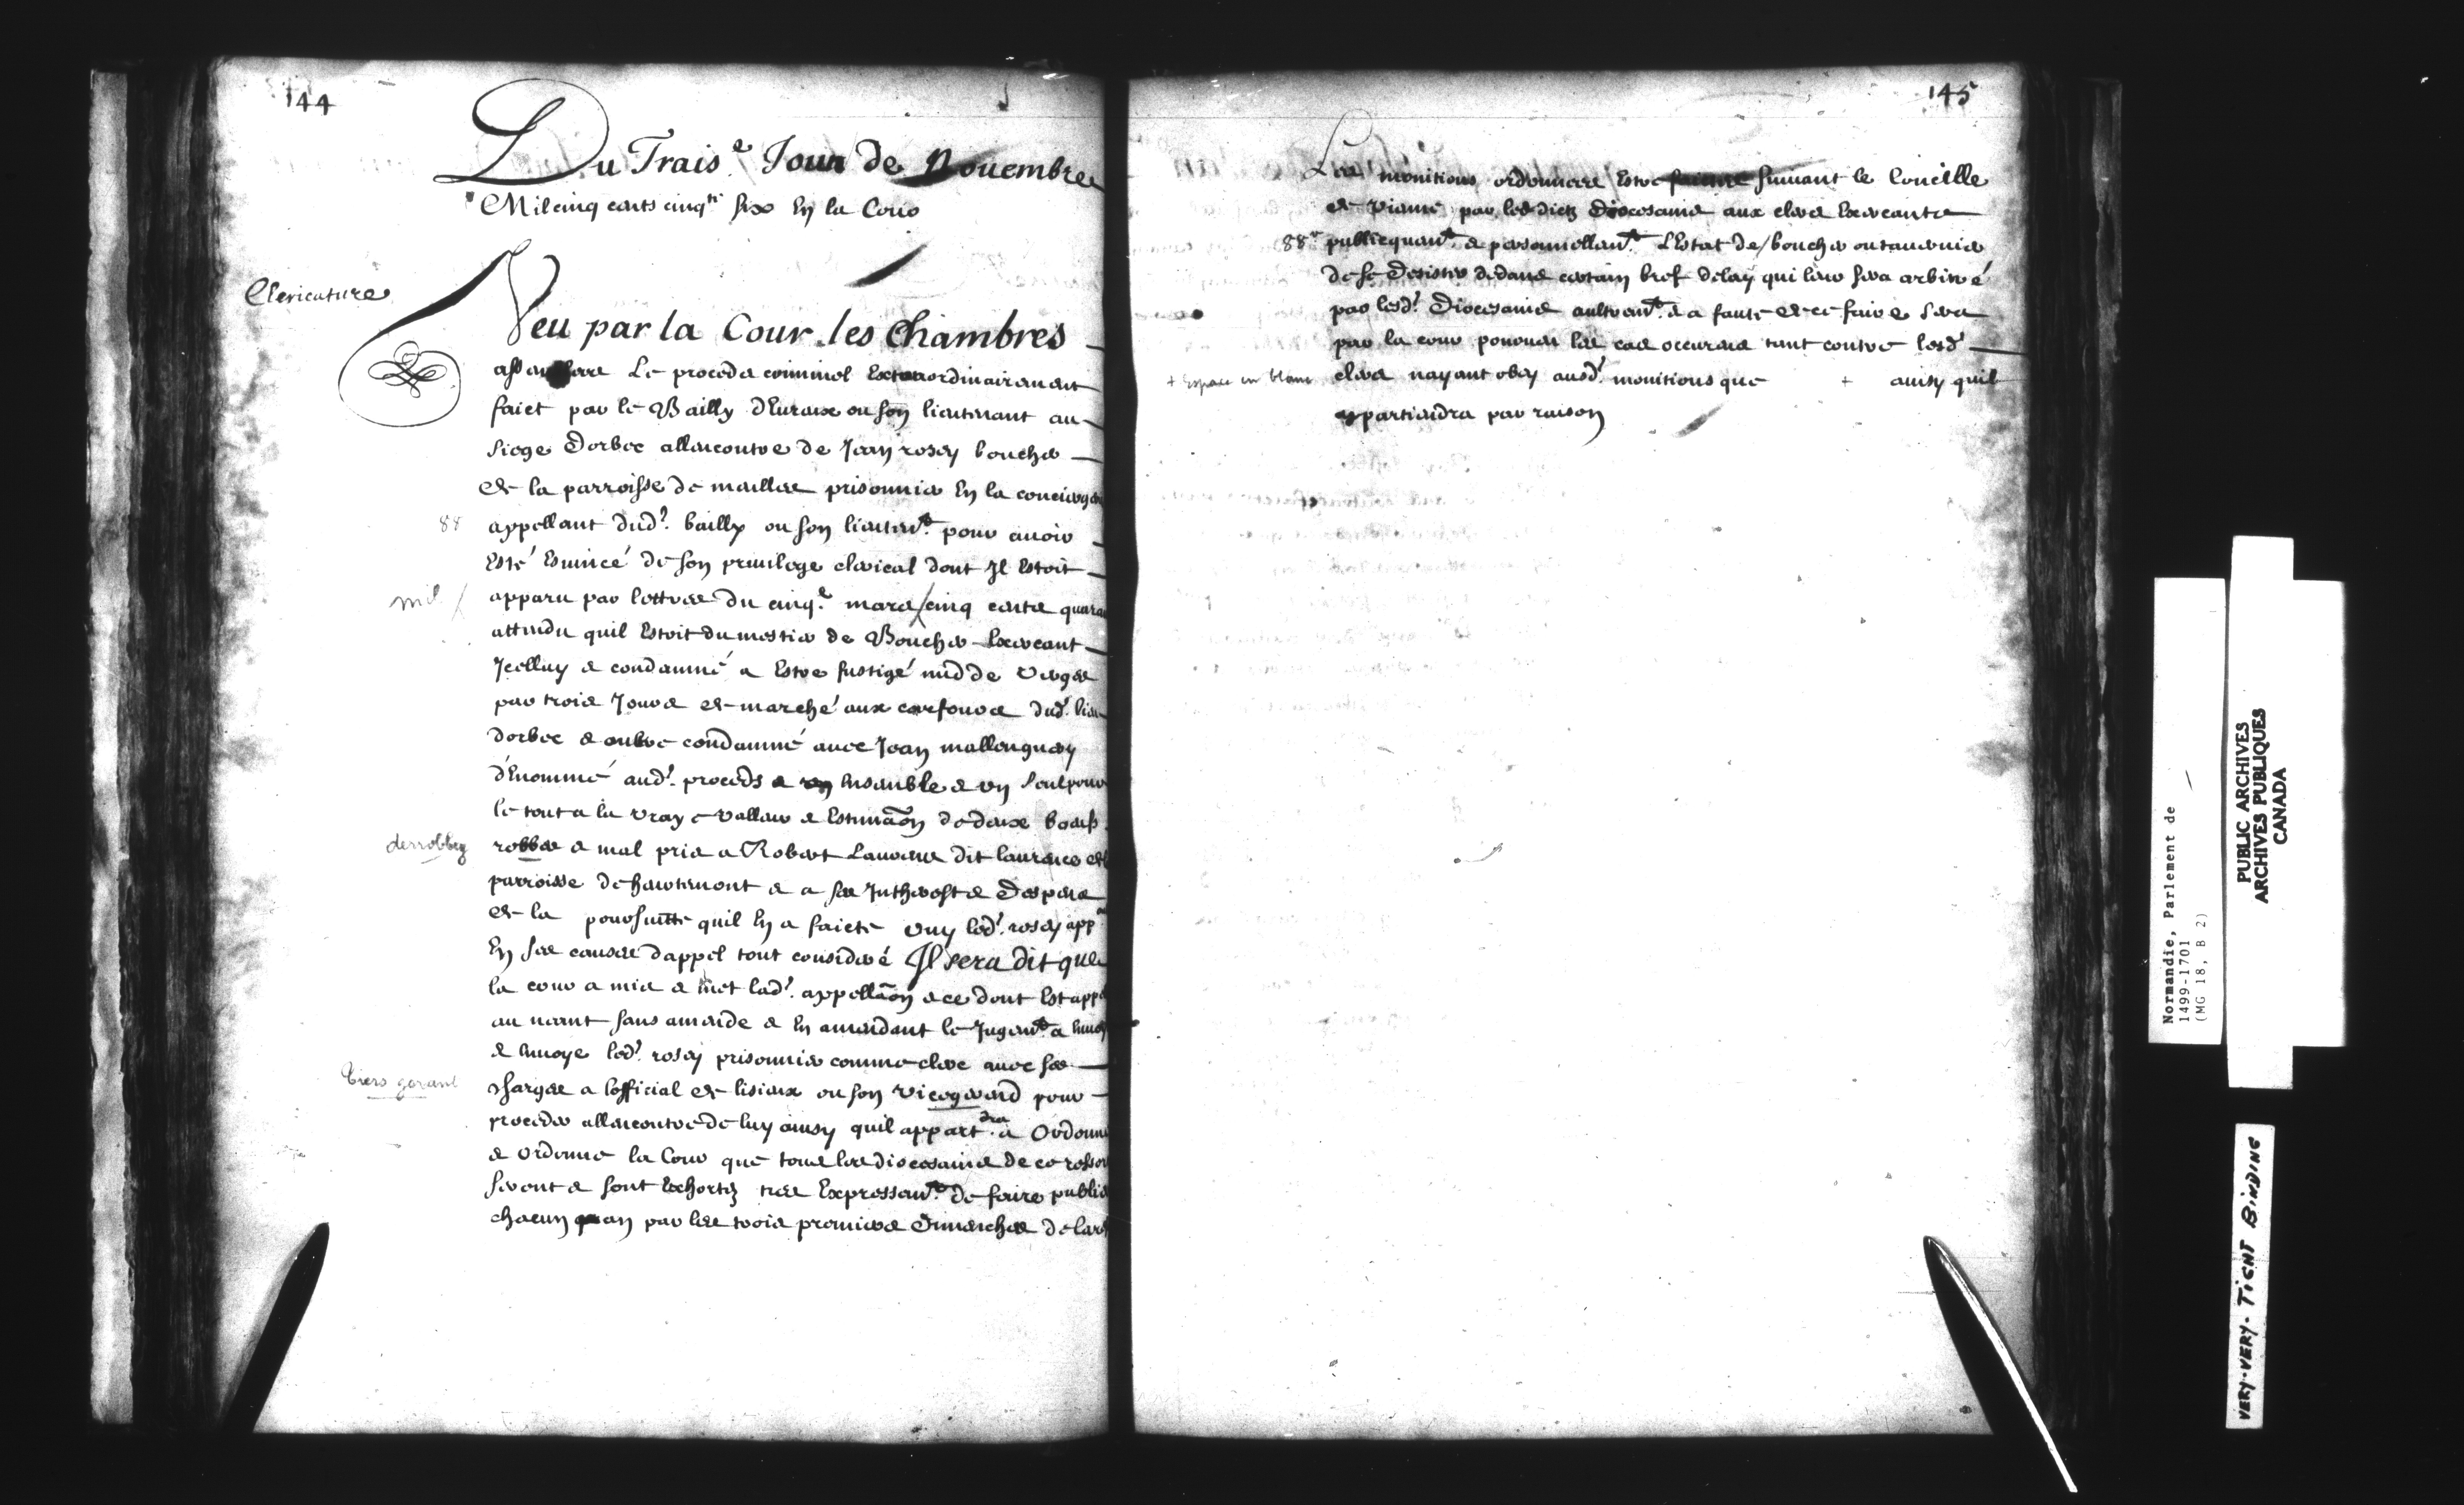 144
Du Trais.e Jour de Nouembre
Mil cinq cents cinq.te six En la Cour
Clericature
Veu par la Cour les Chambres
assemblees Le procedz criminel Extraordinairement
faict par le Bailly dEureux ou son lieutenant au
siege Dorbec allencontre de Jean rosey boucher
de la parroisse de mailloc prisonnier En la conciergerie
88
appellant dud.t bailly ou son lieuten.t pour auoir
Esté Euincé de son priuilege clerical dont Jl Estoit
mil /
apparu par lettres du cinq.e mars / cinq cents quaran
attendu quil Estoit du mestier de Boucher Exerceant
Jcelluy & condamné a Estre fustigé nud de verges
par trois Jours de marché aux carfours dud.t lieu
dorbec & oultre condamné auec Jean mallenguey
dEnommé aud.t proceds & Ensemble & vn seul pour
le tout a la vraye valleur & Estimaon de deux boeufs
derrobbez
robbes & mal pris a Robert Lauvene dit laurence de
parroisse de hautemont & a ses Jntherests & Despens
de la poursuitte quil En a faicte ouy led.t rosey app.nt
En ses causes dappel tout consideré Jl sera dit que
la cour a mis & met lad.t appellaon & ce dont Est appe
au neant sans amende & En amendant le Jugem.t a Enuoy
& Enuoye led.t rosey prisonnier comme clerc auec ses
tiers gerant
charges a lofficial de lisieux ou son vicegerend pour
proceder allencontre de luy ainsy quil appart.dra & a Ordonn
& ordonne la Cour que tous les diocesains de ce ressor
seront & sont Exhortez tres Expressem.t de faire publier
chacun an par les trois premiers Dimenches de lar
145
Les monitions ordonnees Estre suiuant le Concille
de vienne par lesdictz diocesains aux clercs Exerceants
88.e
publicquem.t & personnellem.t LEstat de / boucher ou tauernier
de se Desister dedans certain bref delay qui leur sera arbitré
par lesd.t Diocesains aultrem.t & a faute de ce faire sera
par la cour pourueu les cas occurens tant contre lesd.t
+ Espace en blanc
clercs nayant obey ausd.t monitions que + ainsy quil
appartiendra par raison
Normandie, Parlement de
1499-1701
(MG 18, B 2)
PUBLIC ARCHIVES
ARCHIVES PUBLIQUES
CANADA
VERY-VERY-TIGHT BINDING